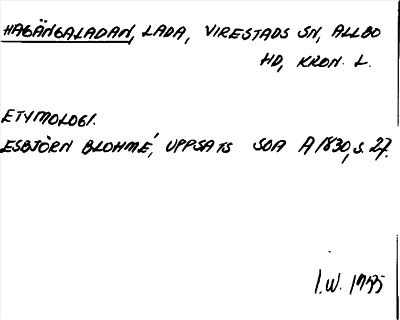 HAGÄNGALADAN, LADA, VIRESTADS SN, ALLBO
HD, KRON. L.
ETYMOLOGI.
ESBJÖRN BLOHMÉ, UPPSATS SOA A 1830, S. 27.
I.W. 1975